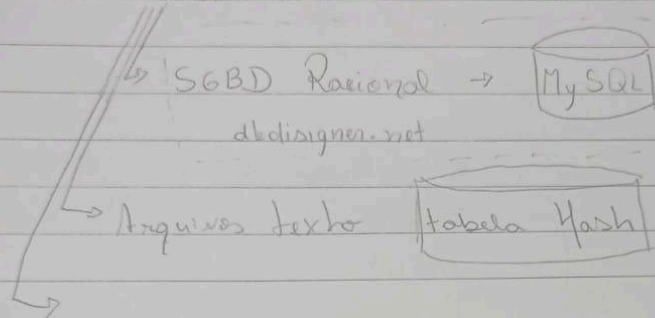 SGBD Racional → MySQL
dbdisigner.net
Arquivos texto tabela Hash